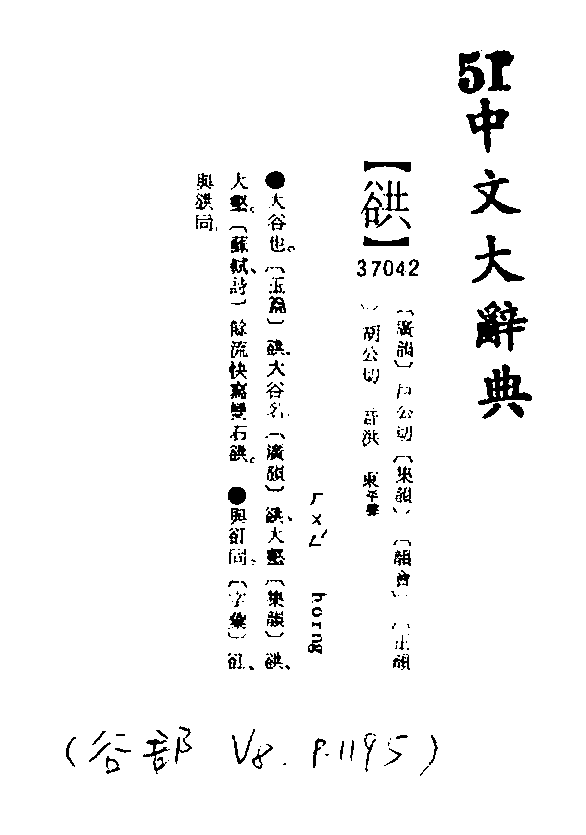 51
中文大辭典
【谼】
37042
〔廣韻〕戶公切〔集韻〕〔韻會〕〔正韻
〕胡公切 音洪 東平聲
ㄏㄨㄥˊ horng
●大谷也。〔玉篇〕谼、大谷名。〔廣韻〕谼、大壑〔集韻〕谼、
大壑。〔蘇軾、詩〕餘流快寫雙石谼。●與谾同。〔字彙〕谾、
與谼同。
(谷部 V8. P.1195)